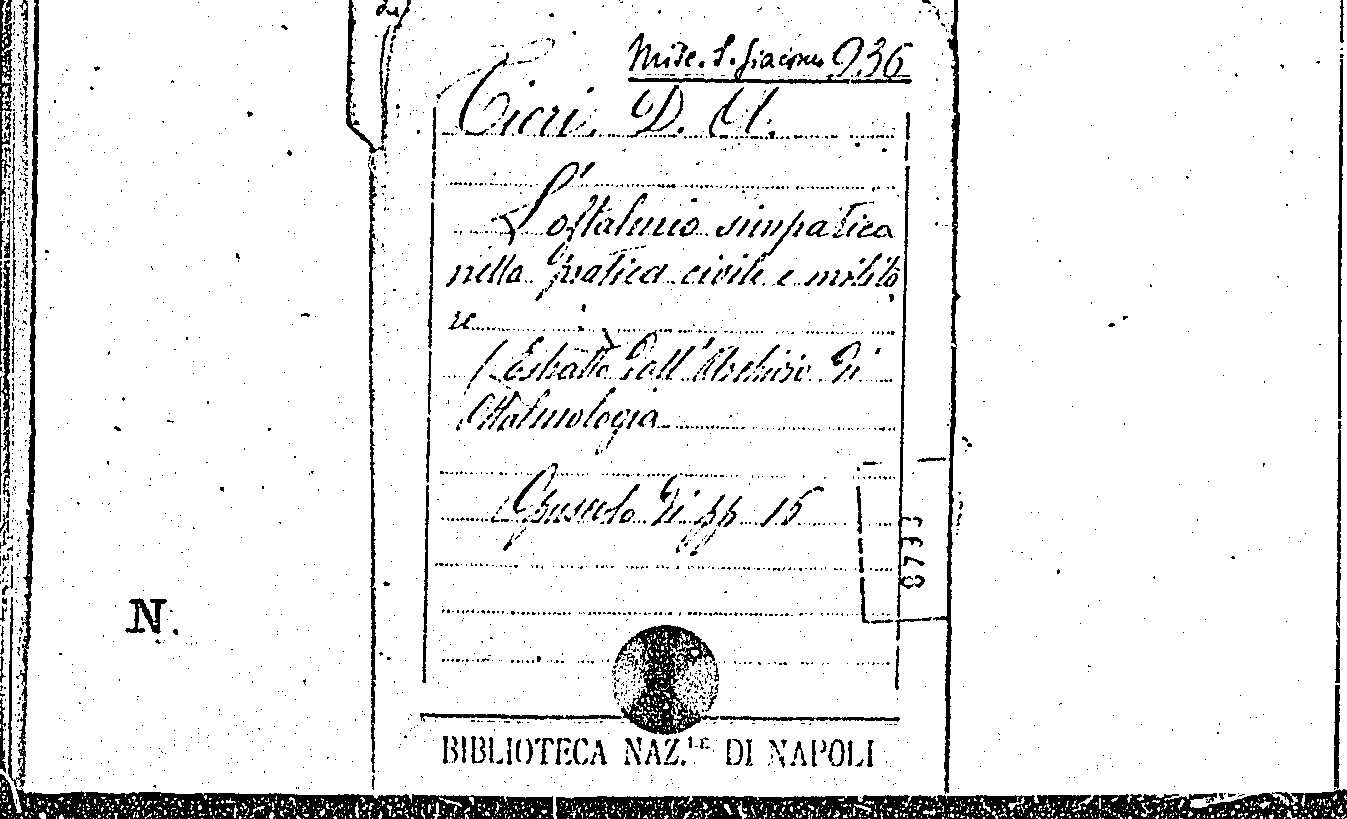 di
Misc. S. Giacomo 936
Cicri. D. A.
L'oftalmio simpatica
nella pratica civile e milita
re
(Estratto dall'Archivio di
Ottalmologia
Opuscolo di pp 16
8733
N.
BIBLIOTECA NAZ.LE DI NAPOLI